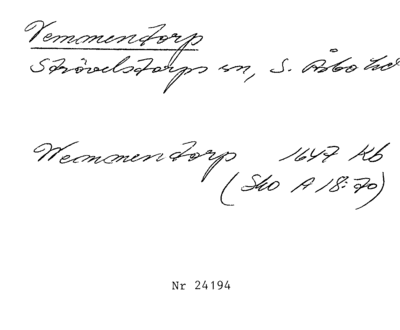 Vemmentorp
Strövelstorps sn, S. Åsbo hd
Wemmentorp 1647 Kb
(Sko A 18:70)
Nr 24194